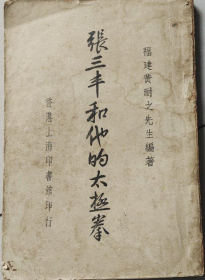 福建黃嗣之先生編著
張三丰和他的太極拳
香港上海印書舘印行